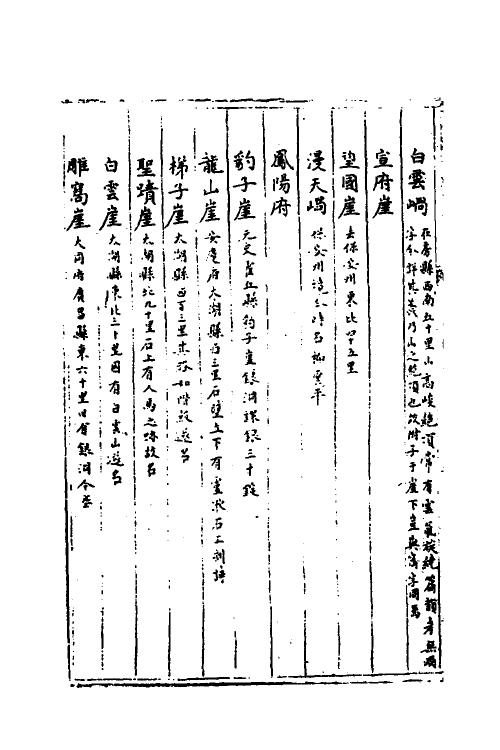 白雲崓 在房縣西南五十里山高峻絶頂常有雲氣旋繞篇韻考無崓
字分詳其義乃山之絶頂也故附子于崖下
宣府崖
望國崖 去保安州東北四十五里
漫天崓 保安州境
鳳陽府
豹子崖 元史虹县豹子崖銀洞課銀三十錠
龍山崖 安慶府太湖縣西三里石壁立下有
梯子崖 太湖縣西百三里其路如階故遂名
聖蹟崖 太湖縣北九十里石上有人馬之跡故名
白雲崖 太湖縣東北三十里因有白雲山遂名
雕窩崖 大同府廣昌縣東六十里旧有銀洞今